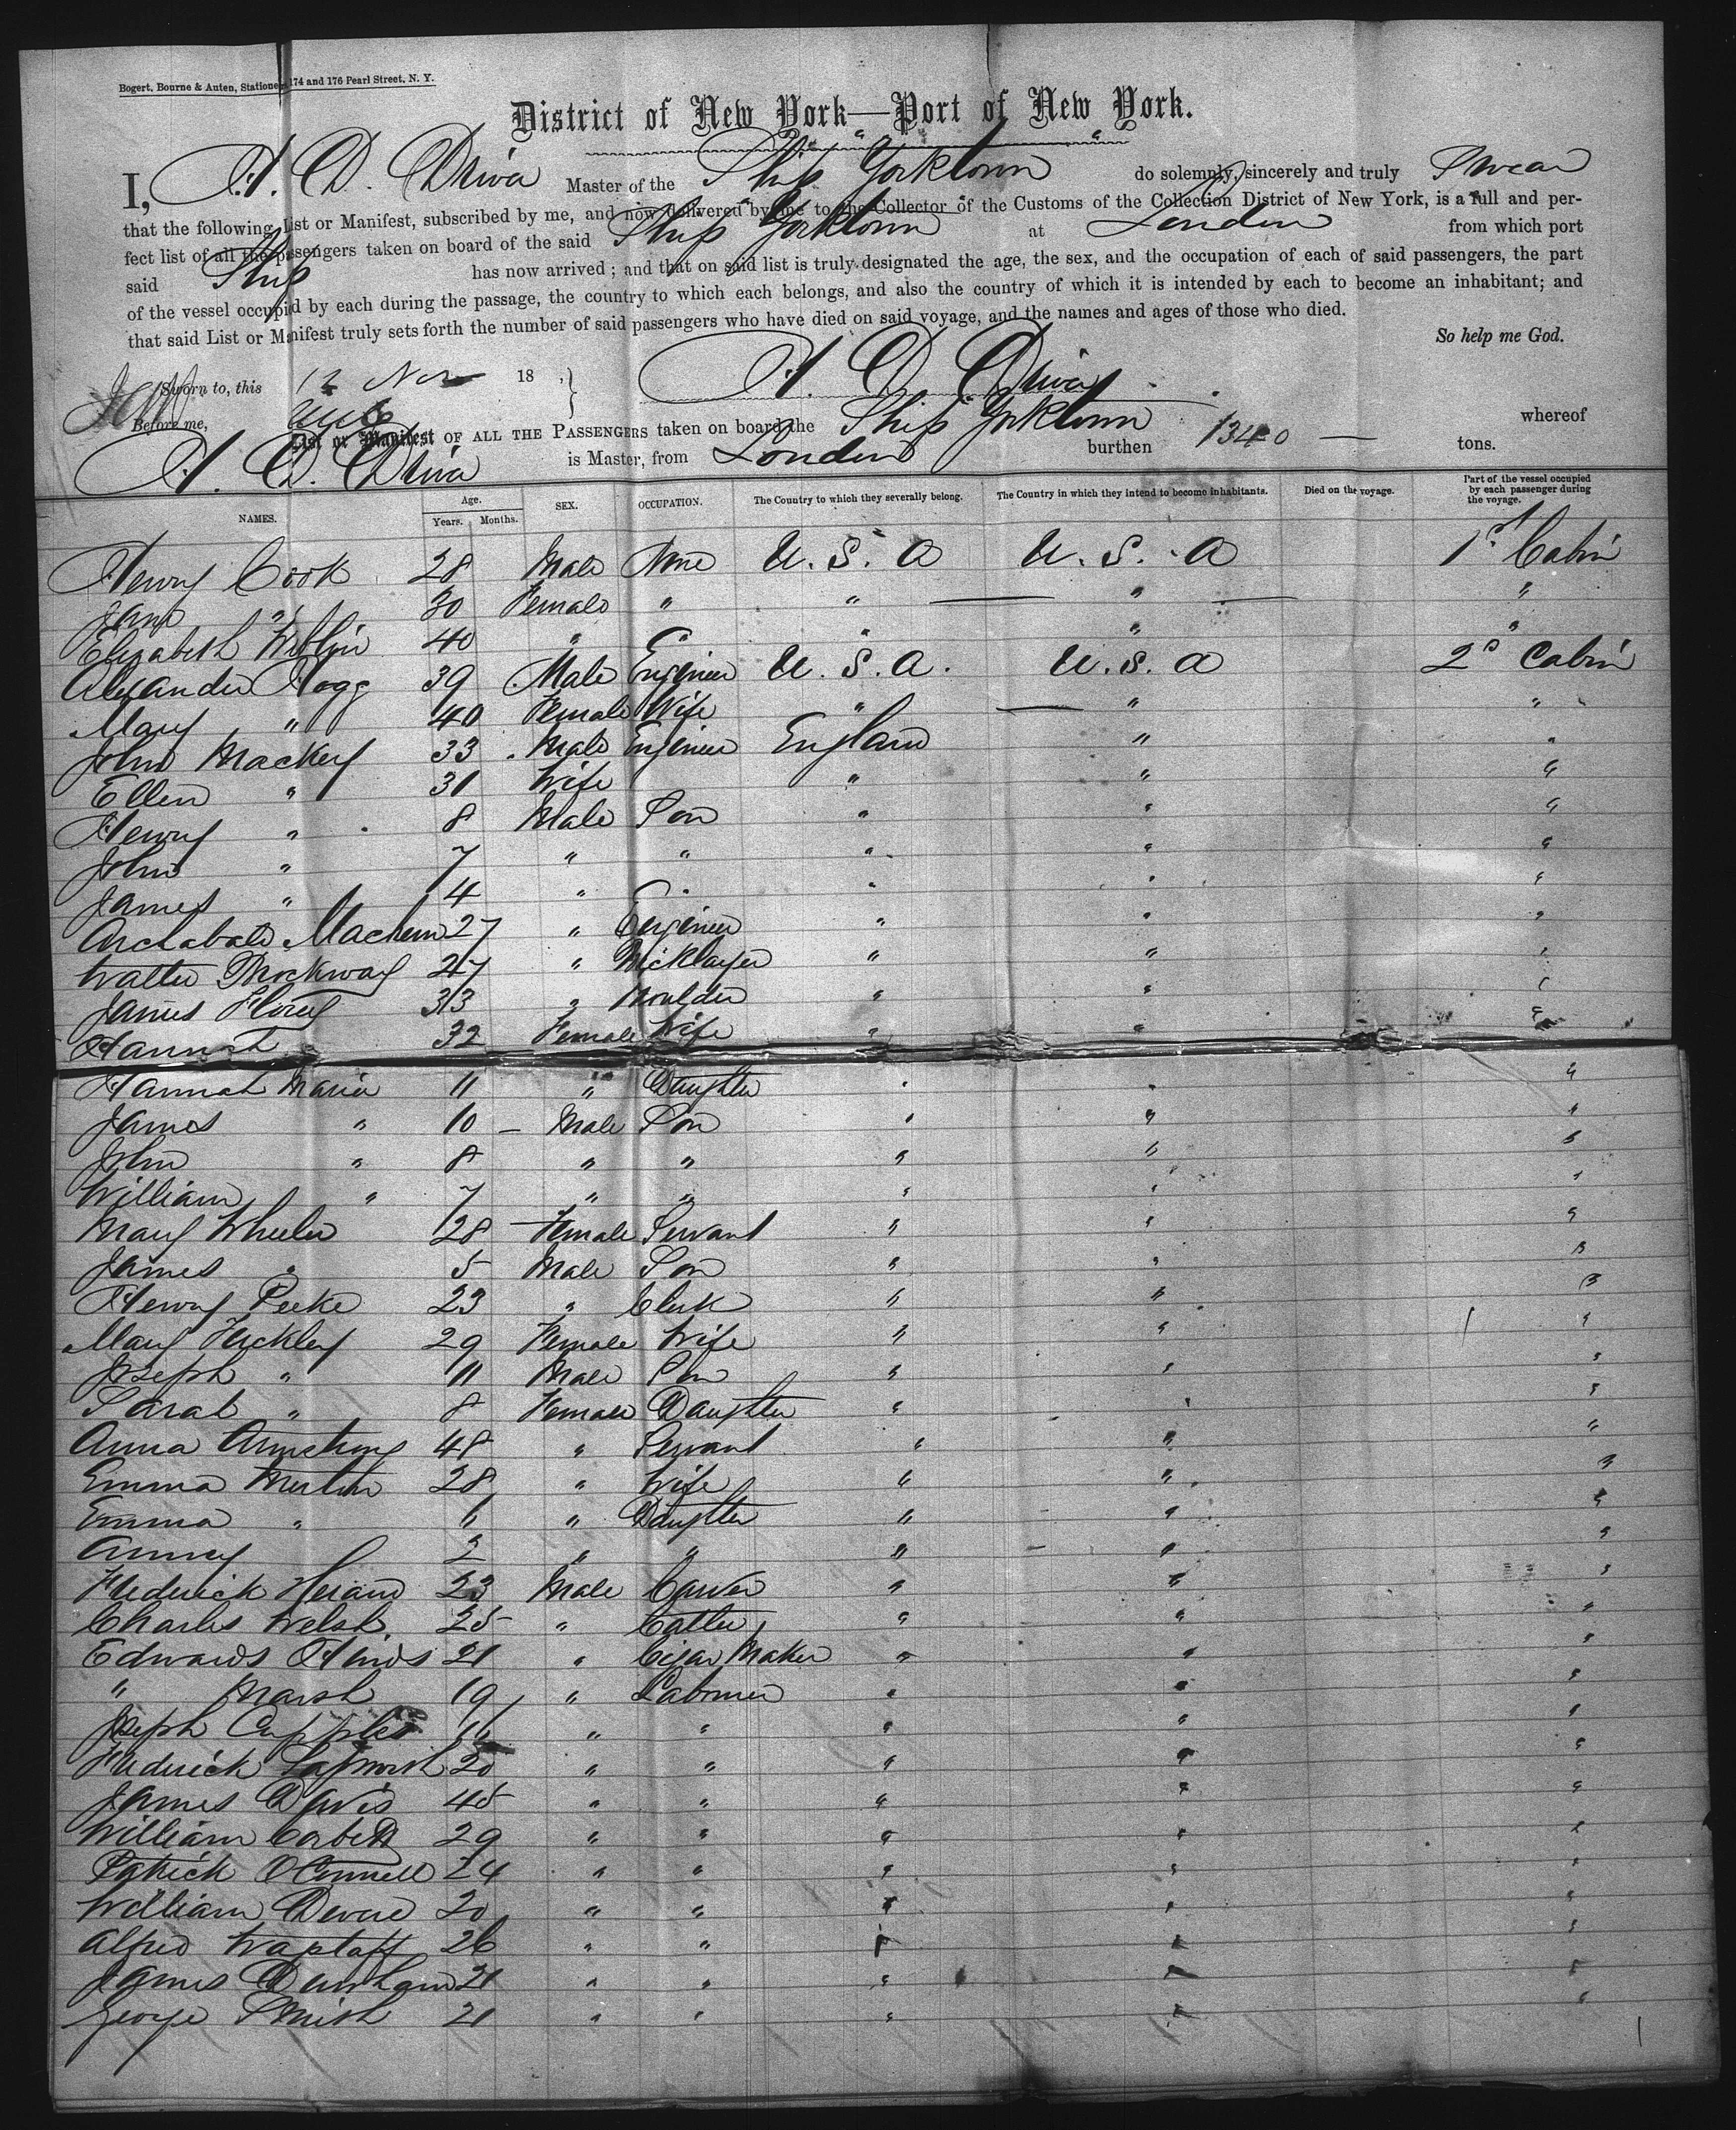 Bogert, Bourne & Auten, Stationers 174 and 176 Pearl Street, N. Y.
District of New York—Port of New York.
I, A. D. Driva Master of the Ship "Yorktown" do solemnly, sincerely and truly Swear
that the following List or Manifest, subscribed by me, and now delivered by me to the Collector of the Customs of the Collection District of New York, is a full and per-
fect list of all the passengers taken on board of the said Ship "Yorktown" at London from which port
said Ship has now arrived; and that on said list is truly designated the age, the sex, and the occupation of each of said passengers, the part
of the vessel occupid by each during the passage, the country to which each belongs, and also the country of which it is intended by each to become an inhabitant; and
that said List or Manifest truly sets forth the number of said passengers who have died on said voyage, and the names and ages of those who died.
So help me God.
Sworn to, this 12 Nov 18 ,} A. D. Driva
Before me,
List or Manifest OF ALL THE PASSENGERS taken on board the Ship Yorktown whereof
A. D. Driva is Master, from London burthen 1340 — tons.
NAMES. Age. Years. Months. SEX. OCCUPATION. The Country to which they severally belong. The Country in which they intend to become inhabitants. Died on the voyage. Part of the vessel occupied by each passenger during the voyage.
Henry Cook 28 Male None U. S. A U. S. A 1st Cabin
Jane " 30 Female " " " "
Elizabeth 40 " " " " "
Alexander Hogg 39 Male Engineer U. S. A. U. S. A 2d Cabin
Mary " 40 Female Wife " " "
John Mackey 33 Male Engineer England " "
Ellen " 31 Wife " " "
Henry " 8 Male Son " " "
John " 7 " " " " "
James " 4 " " " " "
Archabald 27 " Engineer " " "
Walter Brockway 27 " Bricklayer " " "
James Florey 33 " Moulder " " "
Hannah 32 Female Wife " " "
Hannah Maria 11 " Daughter " " "
James " 10 Male Son " " "
John " 8 " " " " "
William " 7 " " " " "
Mary Wheeler 28 Female Servant " " "
James " 5 Male Son " " "
Henry Peeke 23 " Clerk " " "
Mary Huckley 29 Female Wife " " "
Joseph " 11 Male Son " " "
Sarah " 8 Female Daughter " " "
Anna Armstrong 48 " Servant " " "
Emma 28 " Wife " " "
Emma " 6 " Daughter " " "
Anney 2 " " " " "
Frederick 23 Male Carver " " "
Charles Welsh 25 " " " "
Edward Hinds 21 " Cigar Maker " " "
" Marsh 19 " Labourer " " "
Joseph 16 " " " " "
Frederick 20 " " " " "
James Davis 45 " " " " "
William Corbett 29 " " " " "
Patrick O Connell 24 " " " " "
William 20 " " " " "
Alfred Wagstaff 26 " " " " "
James Dunham 21 " " " " "
George Smith 21 " " " " "